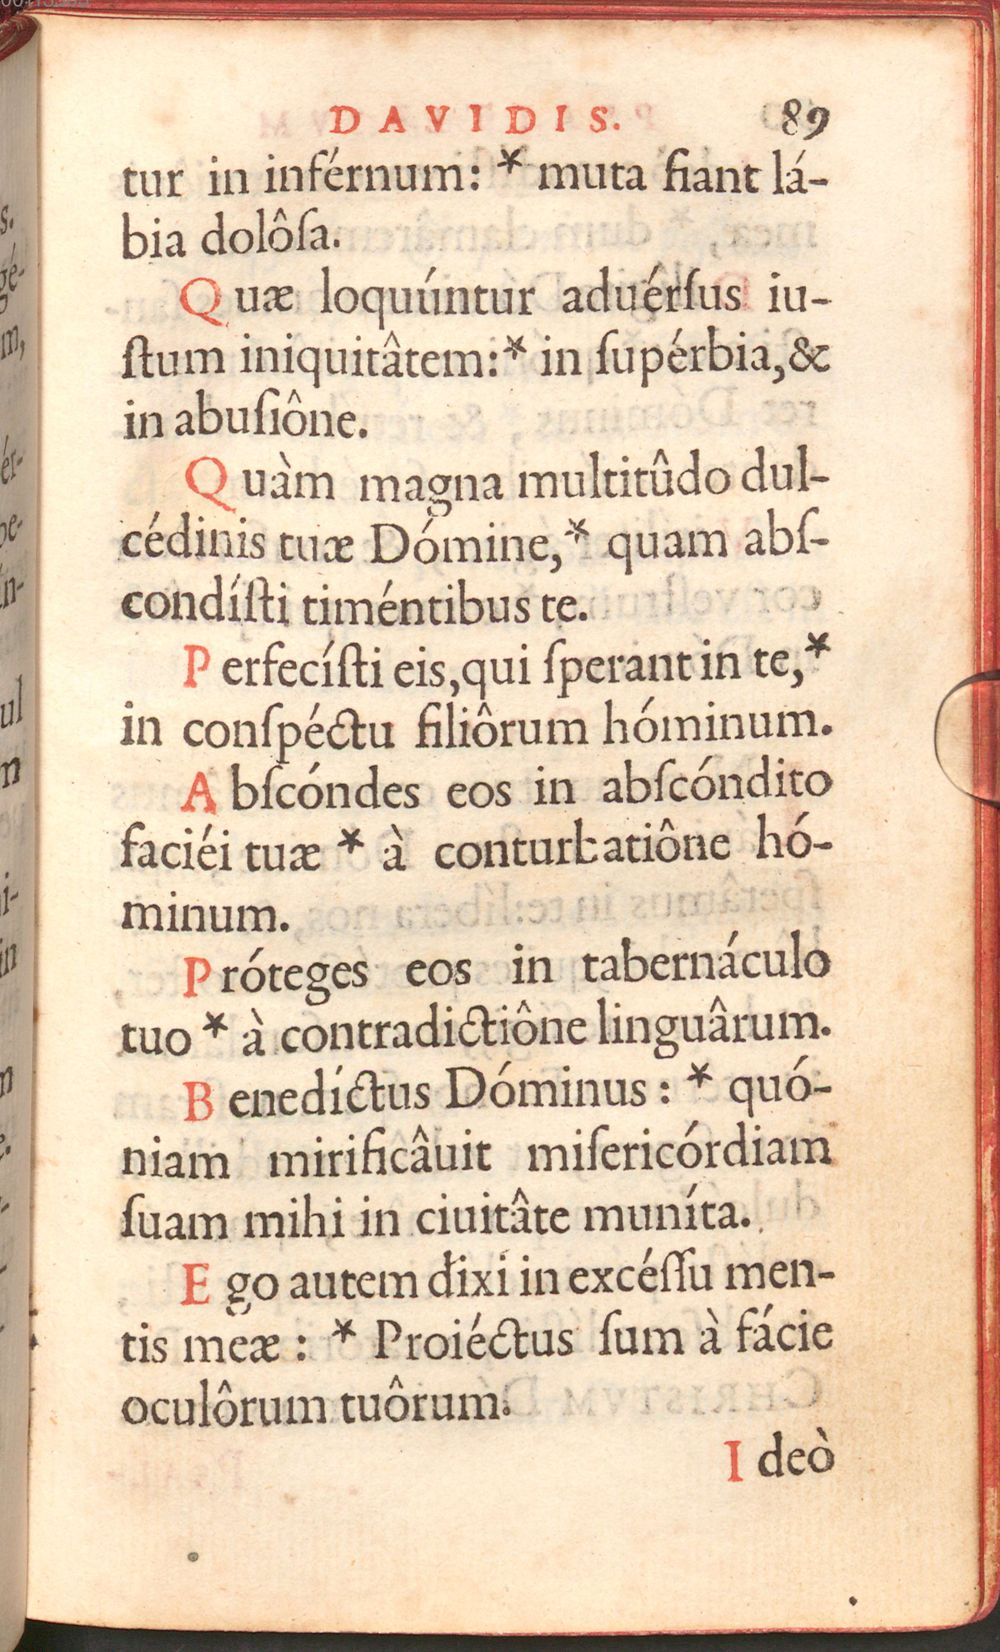 DAVIDIS. 89
tur in inférnum: * muta fiant lá-
bia dolôſa.
Quæ loquúntur aduérſus iu-
ſtum iniquitâtem:* in ſupérbia,&
in abuſiône.
Quàm magna multitûdo dul-
cédinis tuæ Dómine,* quam abſ-
condíſti timéntibus te.
Perfecíſti eis,qui ſperant in te,*
in conſpéctu filiôrum hóminum.
Abſcóndes eos in abſcóndito
faciéi tuæ * à conturbatiône hó-
minum.
Próteges eos in tabernáculo
tuo * à contradictiône linguârum.
Benedíctus Dóminus : * quó-
niam mirificâuit miſericórdiam
ſuam mihi in ciuitâte muníta.
Ego autem dixi in excéſſu men-
tis meæ : * Proiéctus ſum à fácie
oculôrum tuôrum.
Ideò